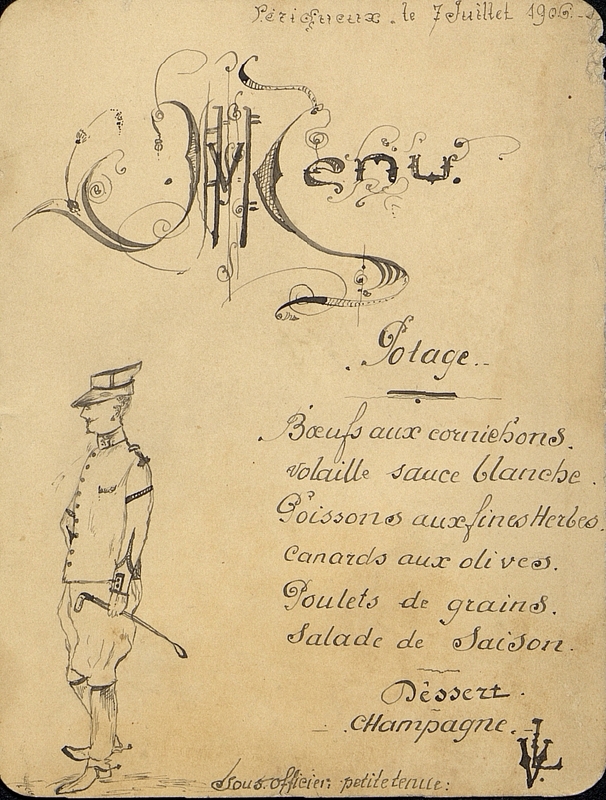 Périgueux. le 7 Juillet 1906.
Menu.
Potage.
Bœufs aux cornichons.
volaille sauce blanche.
Poissons aux fines Herbes.
canards aux olives.
Poulets de grains.
Salade de Saison.
Dèssert.
CHampagne.
Sous.officier: petite tenue: